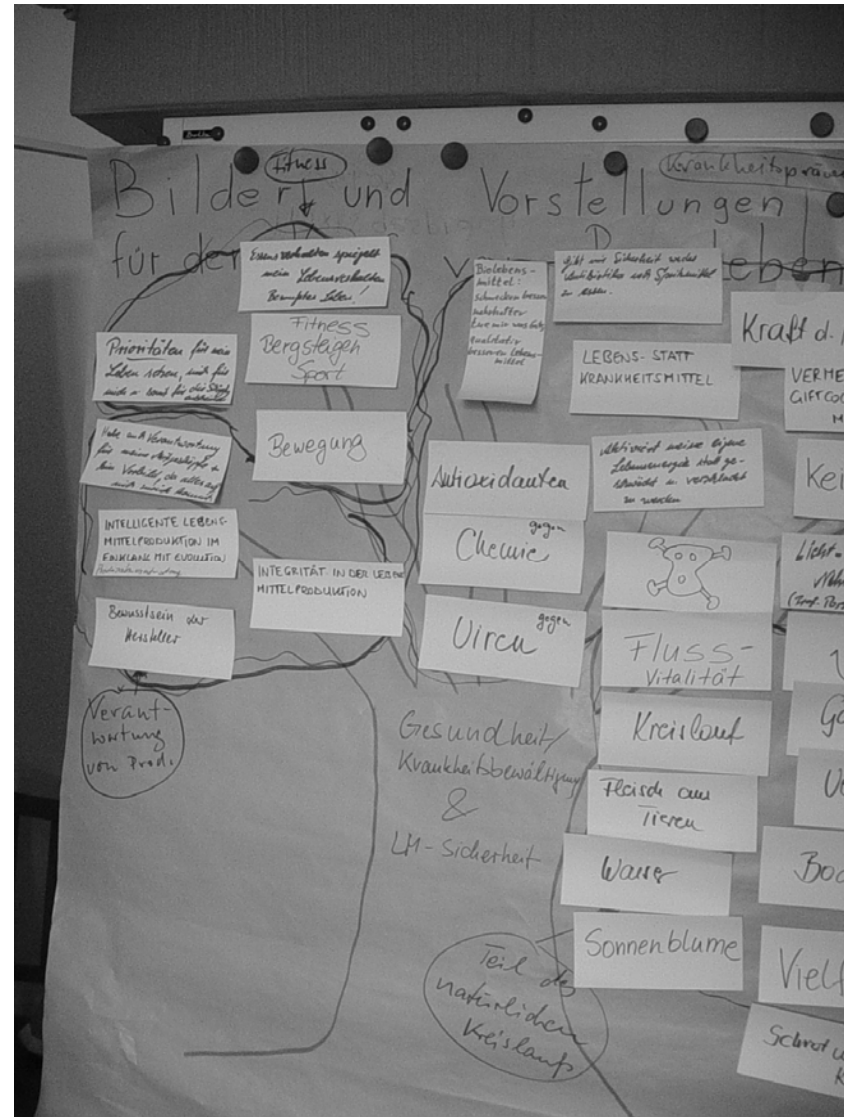 Fitness
Krankheitspräv
Bilder und Vorstellungen
für den
Leben
Essensverhalten spiegelt
mein Lebensverhalten
Bewusstes Leben!
Fitness
Bergsteigen
Sport
Prioritäten für mein
Leben setzen, und für
mich u. somit für die
Bewegung
Habe auch Verantwortung
für meine
INTELLIGENTE LEBENS-
MITTELPRODUKTION IM
EINKLANG MIT EVOLUTION
INTEGRITÄT IN DER LEBENS
MITTELPRODUKTION
Bewusstsein der
Hersteller
Verant-
wortung
von Prod.
Biolebens-
mittel:
schmecken besser
nahrhafter
qualitativ
besseren Lebens-
mittel
Gibt mir Sicherheit weder
Antibiotika noch Spritzmittel
zu essen.
LEBENS- STATT
KRANKHEITSMITTEL
Kraft d.
VERME
GIFTCOC
M
Antioxidanten
Aktiviert meine eigene
Lebensenergie statt ge-
schwächt u. verschlackt
zu werden
Kei
gegen
Chemie
Licht-
gegen
Viren
Fluss-
Vitalität
Gesundheit/
Krankheitsbewältigung
&
LM-Sicherheit
Kreislauf
Fleisch aus
Tieren
Wasser
Boc
Sonnenblume
Vielf
Teil des
natürlichen
Kreislaufs
Schrot u
K